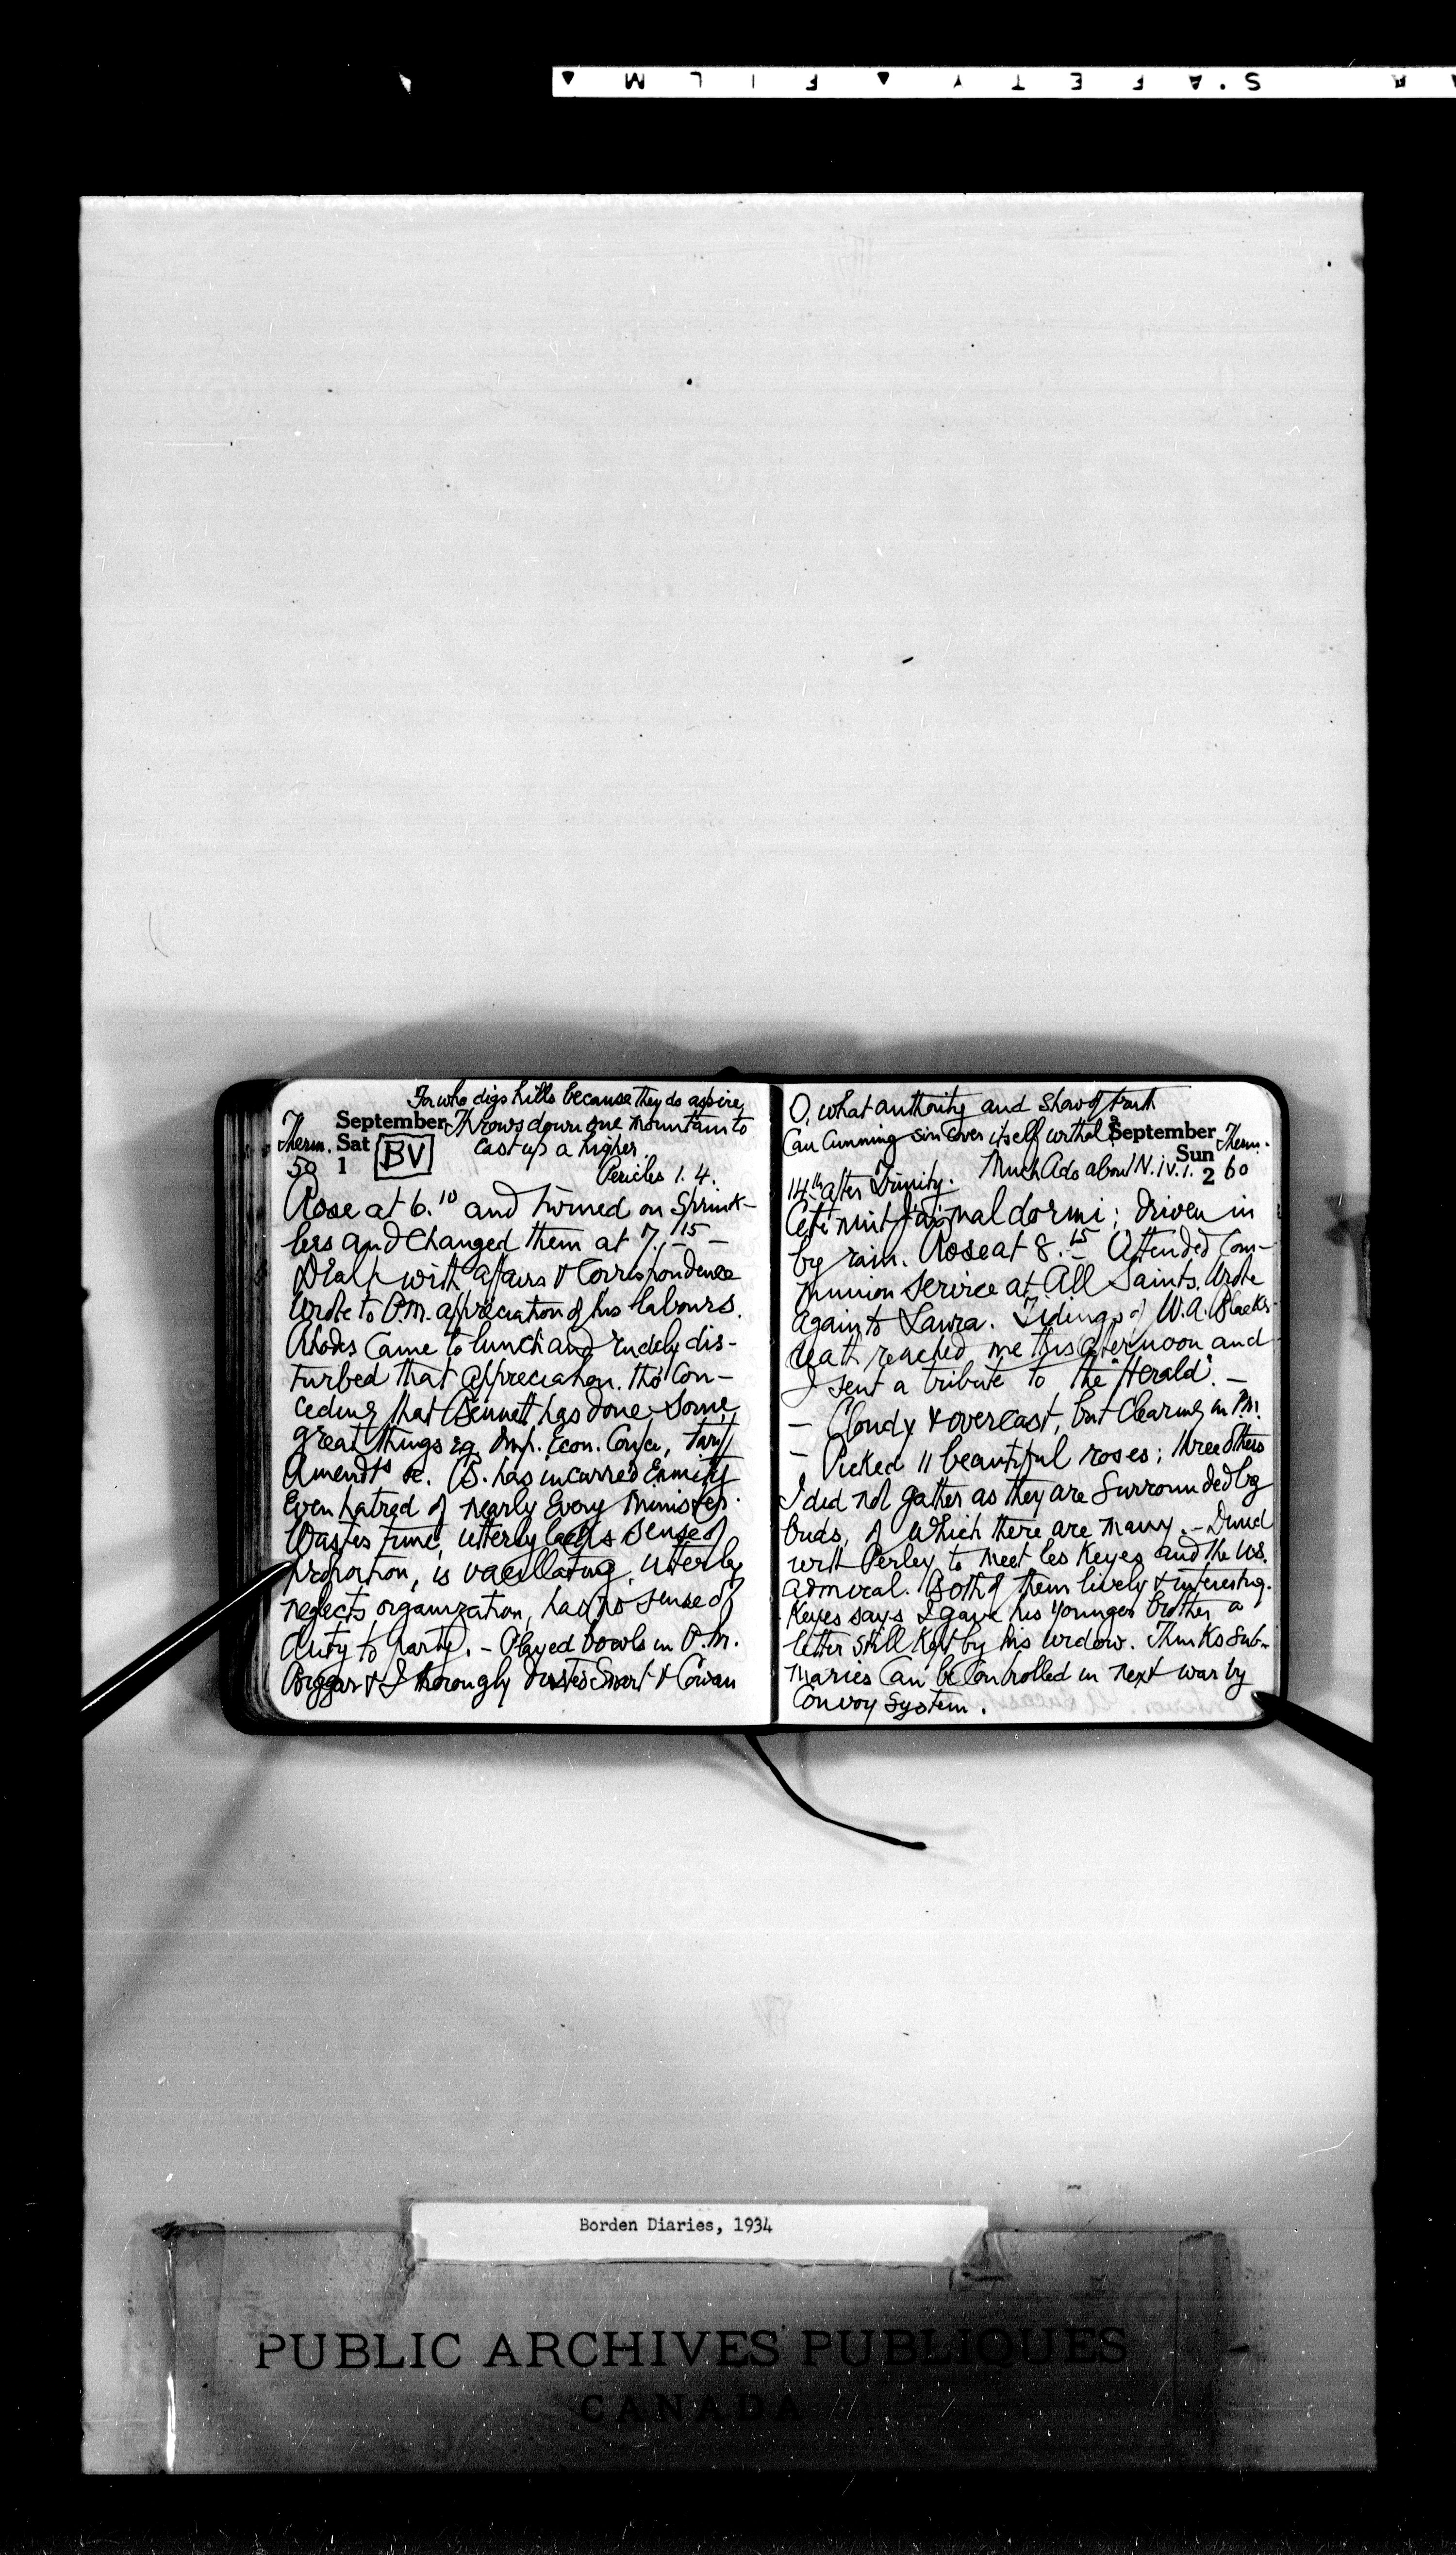 SAFETY FILM
For who digs hills because they do aspire
Throws down one mountain to
cast up a higher.
Pericles 1. 4.
September
Therm. Sat
50 1 BV
Rose at 6.10 and turned on Sprink-
lers and Changed them at 7.15 –
Dealt with affairs & Correspondence
Wrote to P.M. appreciation of his labours.
Rhodes Came to lunch and rudely dis-
turbed that appreciation. tho' Con-
ceding that Bennett has done Some
great things eg. Imp. Econ. Confce, Tariff
Amendts &c. B. has incurred Enmity
Even hatred of nearly Every Minister.
Wastes time, utterly lacks Sense of
proportion, is vacillating, utterly
neglects organization, has no sense of
duty to party. – Played bowls in P.M.
Biggar & I thorougly dusted Smart & Cowan
O, what authority and show of truth
Can Cunning sin Cover itself withal!
September
Sun Therm.
2 60
Much Ado about N. iv. 1.
14th after Trinity.
Cette nuit j'ai mal dormi; driven in
by rain. Rose at 8.15 Attended Com-
munion Service at All Saints. Wrote
again to Laura. Tidings of W.A. Black's
death reached me this afternoon and
I sent a tribute to the "Herald". –
– Cloudy & overcast, but Clearing in P.M.
– Picked 11 beautiful roses; three others
I did not gather as they are Surrounded by
buds, of which there are many. – Dined
with Perley to meet les Keyes and the U.S.
admiral. Both of them lively & interesting.
Keyes says I gave his younger brother a
letter still Kept by his widow. Thinks Sub-
maries Can be Controlled in next war by
Convoy System.
Borden Diaries, 1934
PUBLIC ARCHIVES PUBLIQUES
CANADA